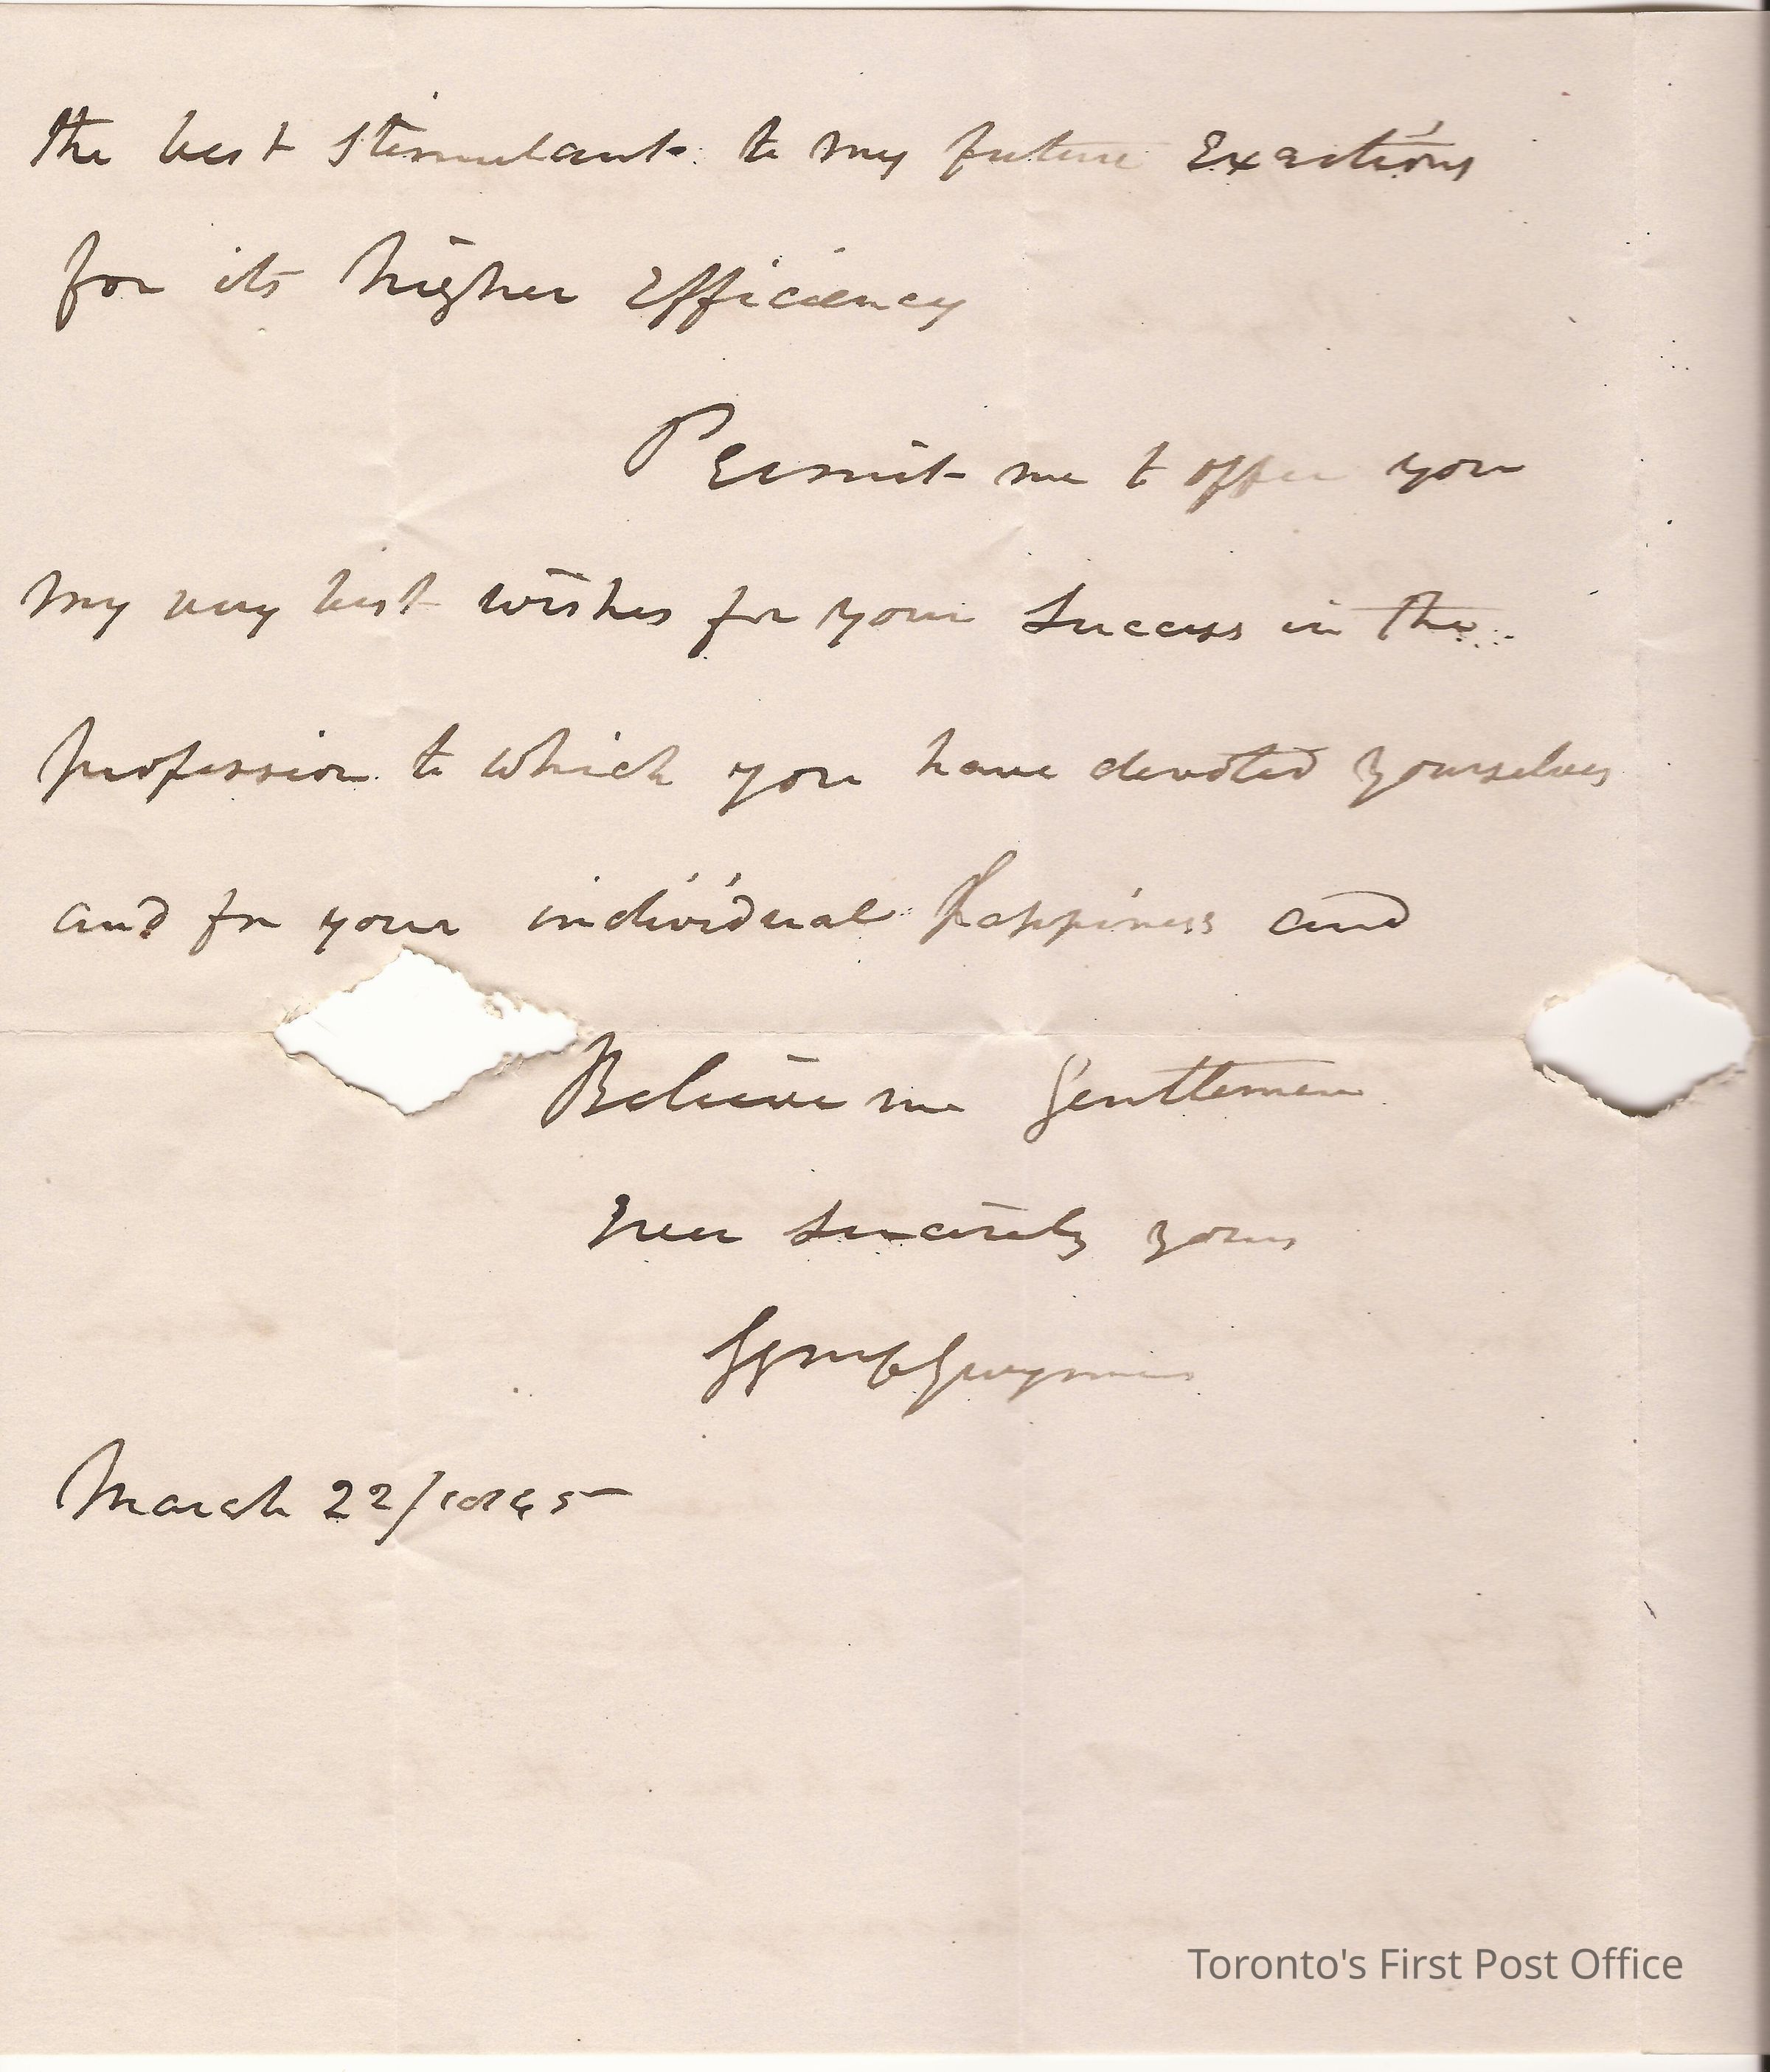 the best Stimulant to my future Exertions
for its higher Efficiency
Permit me to offer you
my very best wishes for your Success in the
profession to which you have devoted yourselves
and for your individual happiness and
Believe me Gentlemen
Ever Sincerely yours
Gwynne
March 22/1845
Toronto's First Post Office